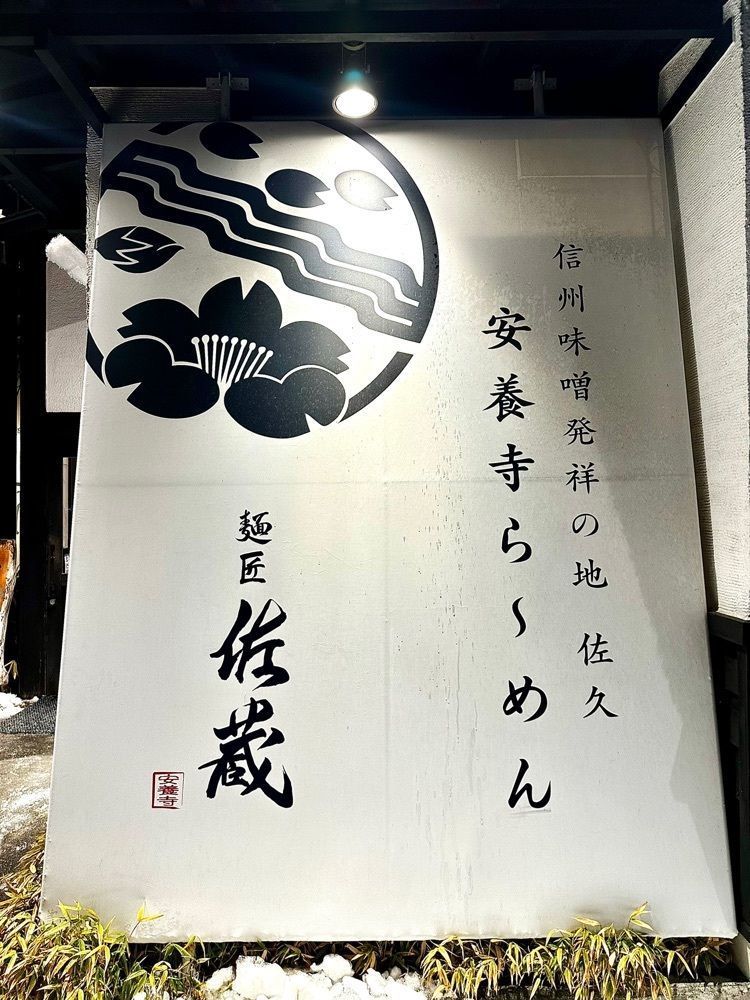 信州味噌発祥の地 佐久
安養寺ら～めん
麺匠
佐蔵
安養寺